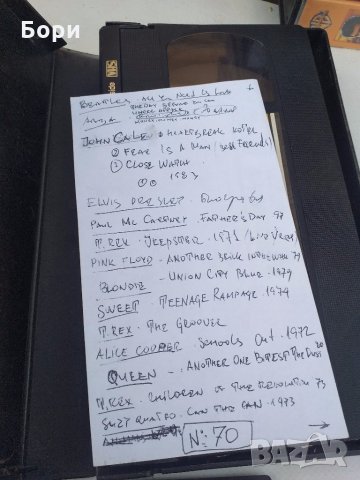 Бори
VHS
BEATLES All You Need Is Love
JOHN CALE ① HEARTBREAK HOTEL
② FEAR IS A MAN / BEST FRIEND)
③ CLOSE WATCH
1983
ELVIS PRESLEY
PAUL MC CARTNEY FATHER'S DAY 97
T. REX - JEEPSTER - 1971 / LIVE VERS)
PINK FLOYD - ANOTHER BRICK IN THE WALL 79
BLONDIE - UNION CITY BLUE - 1979
SWEET - TEENAGE RAMPAGE 1974
T. REX - THE GROOVER
ALICE COOPER SCHOOLS OUT - 1972
QUEEN - ANOTHER ONE BITES THE DUST 80
T. REX - CHILDREN OF THE REVOLUTION 73
SUZI QUATRO - CAN THE CAN - 1973
№: 70
→
bazar.bg